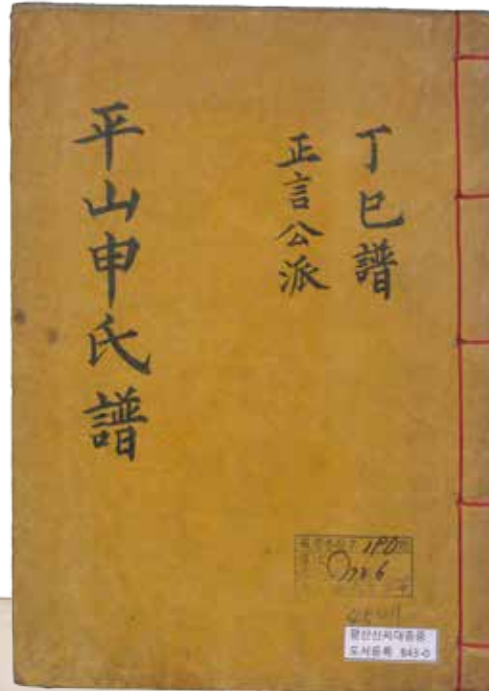 丁巳譜
正言公派
平山申氏譜
평산신씨대종중
도서등록 843-0